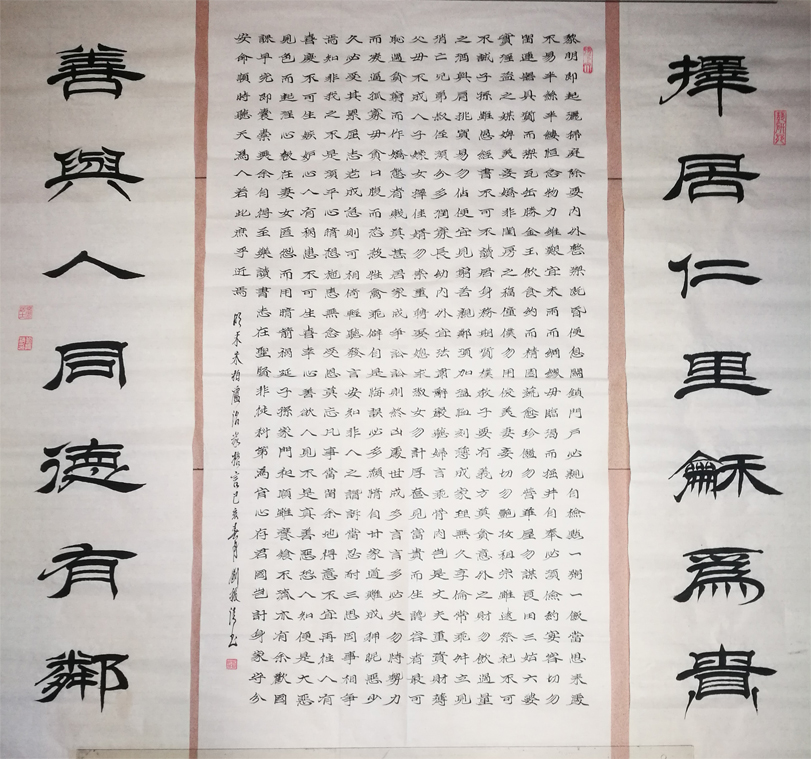 擇居仁里龢爲貴
黎明即起灑掃庭除要內外整潔既昏便息關鎖門戶必親自檢點一粥一飯當思来處
不易半絲半縷恒念物力維艱宜未雨而綢繆毋臨渴而掘井自奉必須儉約宴客切勿
留連器具質而潔瓦缶勝金玉飲食約而精園蔬愈珍饈勿營華屋勿謀良田三姑六婆
實淫盜之媒婢美妾嬌非閨房之福僮僕勿用俊美妻妾切勿艷妝祖宗雖遠祭祀不可
不誠子孫雖愚經書不可不讀居身務期質樸教子要有義方莫貪意外之財勿飲過量
之酒與肩挑貿易勿佔便宜見窮苦親鄰須加溫卹刻薄成家理無久享倫常乖舛立見
消亡兄弟叔侄須分多潤寡長幼內外宜法肅辭嚴聽婦言乖骨肉豈是丈夫重貲財薄
父母不成人子嫁女擇佳婿勿索重聘娶媳求淑女勿計厚奩見富貴而生諂容者最可
恥遇貧窮而作驕態者賤莫甚居家戒爭訟訟則終凶處世戒多言言多必失勿恃勢力
而凌逼孤寡毋貪口腹而恣殺牲禽乖僻自是悔誤必多頹惰自甘家道難成狎昵惡少
久必受其累屈志老成急則可相倚輕聽發言安知非人之譖訴當忍耐三思因事相爭
焉知非我之不是須平心暗想施惠無念受恩莫忘凡事當留余地得意不宜再往人有
喜慶不可生嫉妒心人有禍患不可生喜幸心善欲人見不是真善惡恐人知便是大惡
見色而起淫心報在妻女匿怨而用暗箭禍延子孫家門和順雖饔飧不濟亦有余歡國
課早完即囊橐無余自得至樂讀書志在聖賢非徒科第為官心存君國豈計身家守分
安命順時聽天為人若此庶乎近焉 明末朱柏廬治家格言己亥春月劉书
善與人同德有鄰